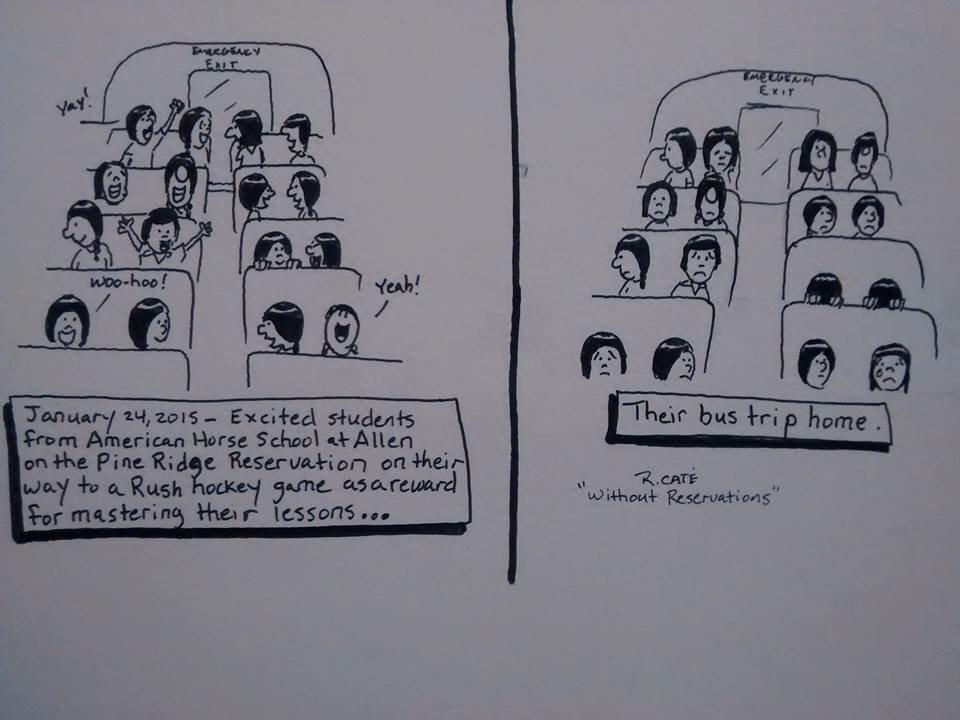 EMERGENCY
EXIT
yay!
woo-hoo!
Yeah!
January 24, 2015 - Excited students
from American Horse School at Allen
on the Pine Ridge Reservation on their
way to a Rush hockey game as a reward
for mastering their lessons...
EMERGENCY
EXIT
Their bus trip home.
R. CATÉ
"Without Reservations"